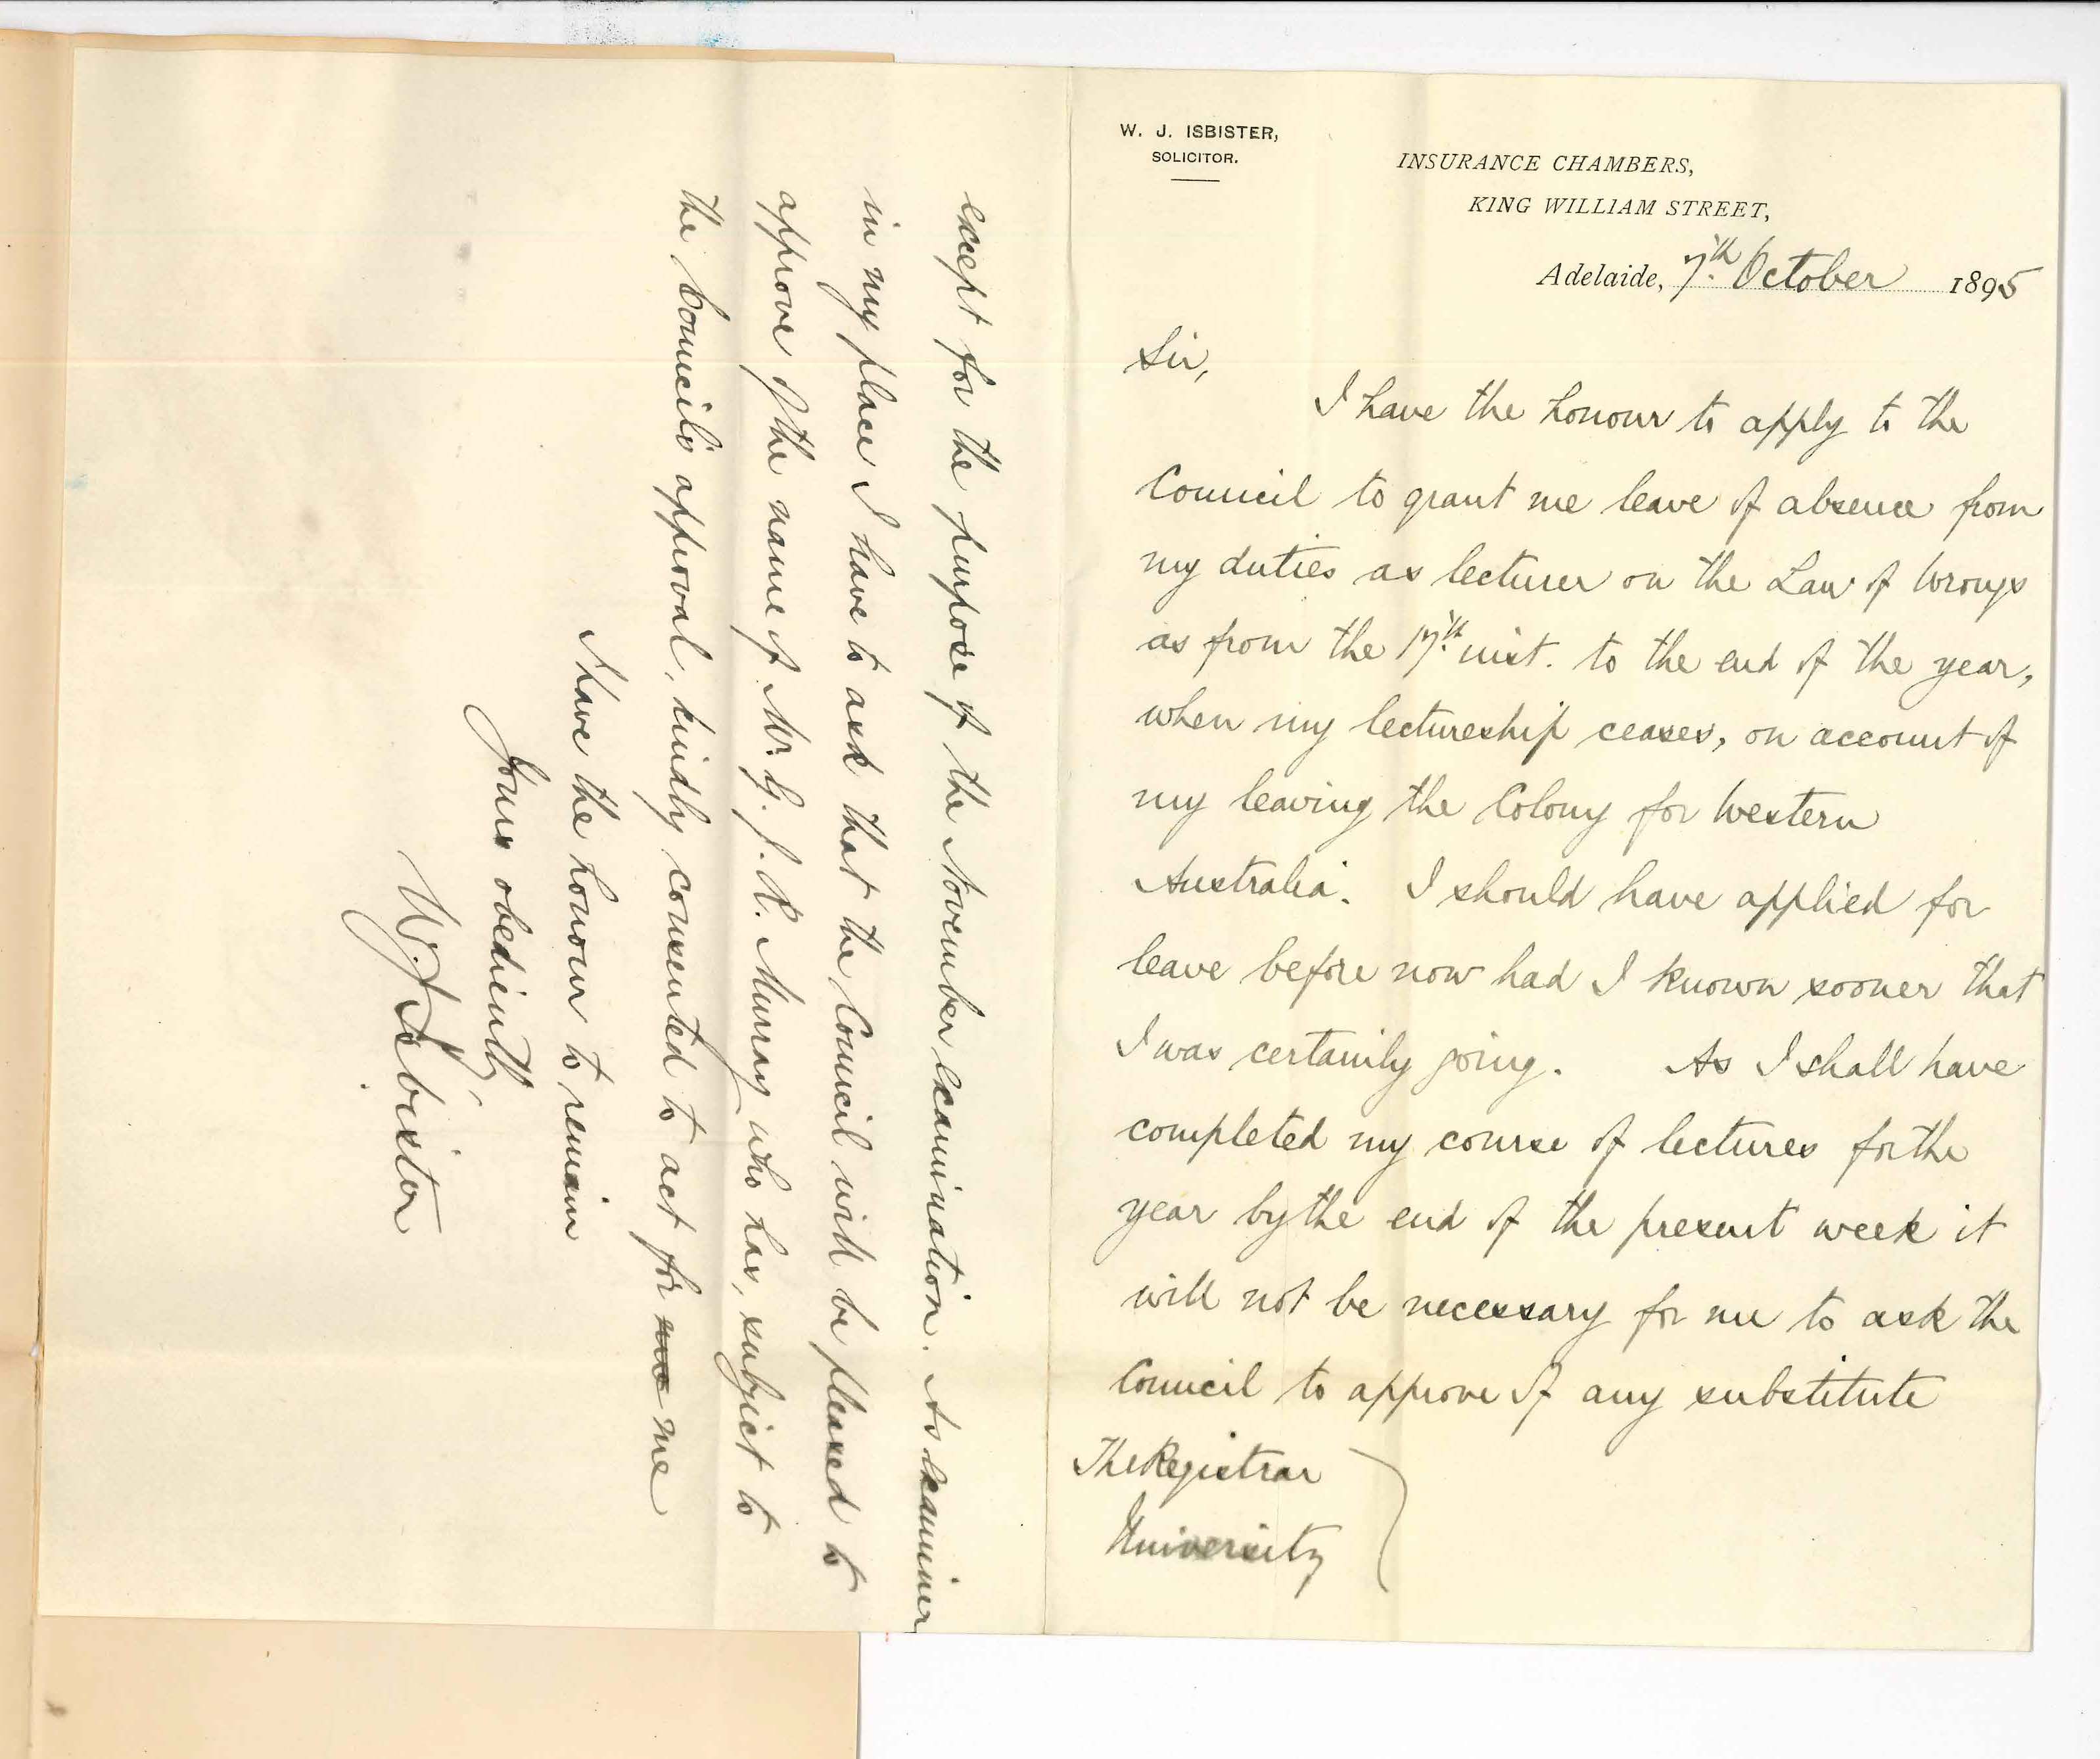 W. J. ISBISTER,
SOLICITOR.
INSURANCE CHAMBERS,
KING WILLIAM STREET,
Adelaide, 7th. October 1895
Sir,
I have the honour to apply to the
Council to grant me leave of absence from
my duties as lecturer on the Law of Wrongs
as from the 17th. inst. to the end of the year,
when my lectureship ceases, on account of
my leaving the Colony for Western
Australia. I should have applied for
leave before now had I known sooner that
I was certainly going. As I shall have
completed my course of lectures for the
year by the end of the present week it
will not be necessary for me to ask the
Council to approve of any substitute
The Registrar
University
except for the purpose of the November examination. As examiner
in my place I have to ask that the Council will be pleased to
approve of the name of Mr. G. J. R. Murray who has, subject to
the Council's approval, kindly consented to act for me
I have the honour to remain
Yours obediently,
W. J. Isbister